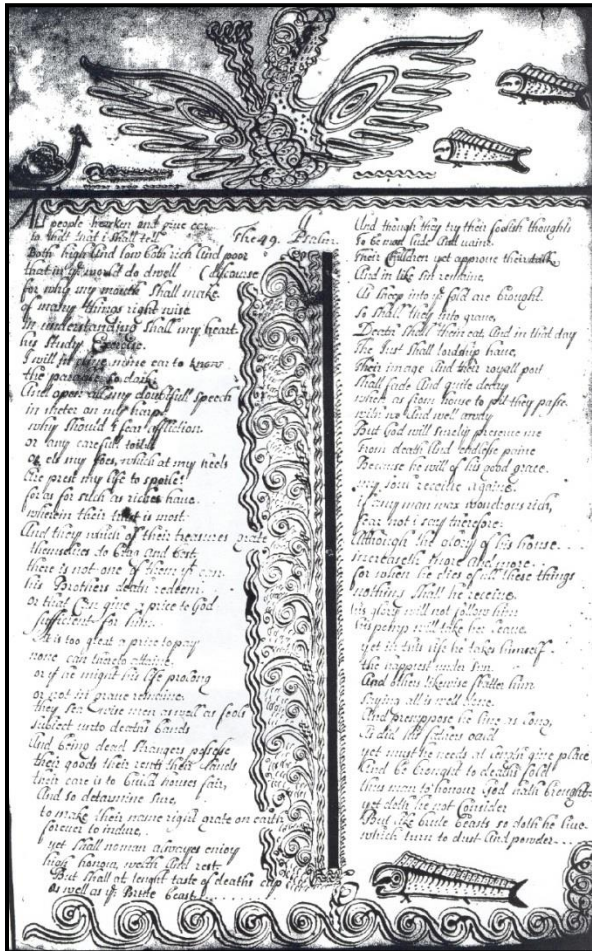 All people hearken and give ear
to that that i shall tell
The 49. Psalm.
Both high And low both rich And poor
that in yᵉ world do dwell
for why my mouth shall make (discourse
of many things right wise
In understanding shall my heart
his study Exercise.
I will my ear to know
the parables so dark
And open all my doubtfull speech
in meter on my harp
why should I fear affliction
or any carefull
or els my foes, which at my heels
Are prest my life to spoile
for as for such as riches have
wherein their trust is most
And they which of their treasures grate
themselves to brag And bost
there is not one of them yᵗ can
his Brothers death redeem
or that Can give A price to God
sufficient for him.
It is too great a price to pay
none can attaine
or if he might his life prolong
or not in grave remaine.
they see wise men as well as fools
subject unto deaths bands
And being dead strangers possesse
their goods their rents their Lands
their care is to build houses fair,
And so determine sure,
to make their name right grate on earth
forever to indure.
yet shall noman alwayes enjoy
high honour, welth And rest
But shall at lenght taste of deaths cup
as well as yᵉ Brute beast
And though they try their foolish thoughts
to be most lude And vaine.
their Children yet approve their talk
And in like sin remaine.
As sheep into yᵉ fold are brought.
so shall they into grave,
Death shall their eat, And in that day
The Just shall lordship have,
their image And their royall port
shall fade And quite decay
when as from house to pitt they passe.
with wo And well away
But God will surely preserve me
from death And endlesse paine
Because he will of his good grace.
my soul receive Againe.
If any man wax wondrous rich,
fear not i say therefore
Although the glory of his house.
increaseth more And more.
for when he dies of all these things
nothing shall he receive.
his glory will not follow him
his pomp will take her leave.
yet in this life he takes himself
the happiest under sun.
And others likewise flatter him
saying all is well done.
And presuppose he live as long,
As did his fathers
yet must he needs at length give place
And be brought to deaths fold
thus man to honour God hath brought
yet doth he not Consider
But like brute beasts so doth he live.
which turn to dust And powder